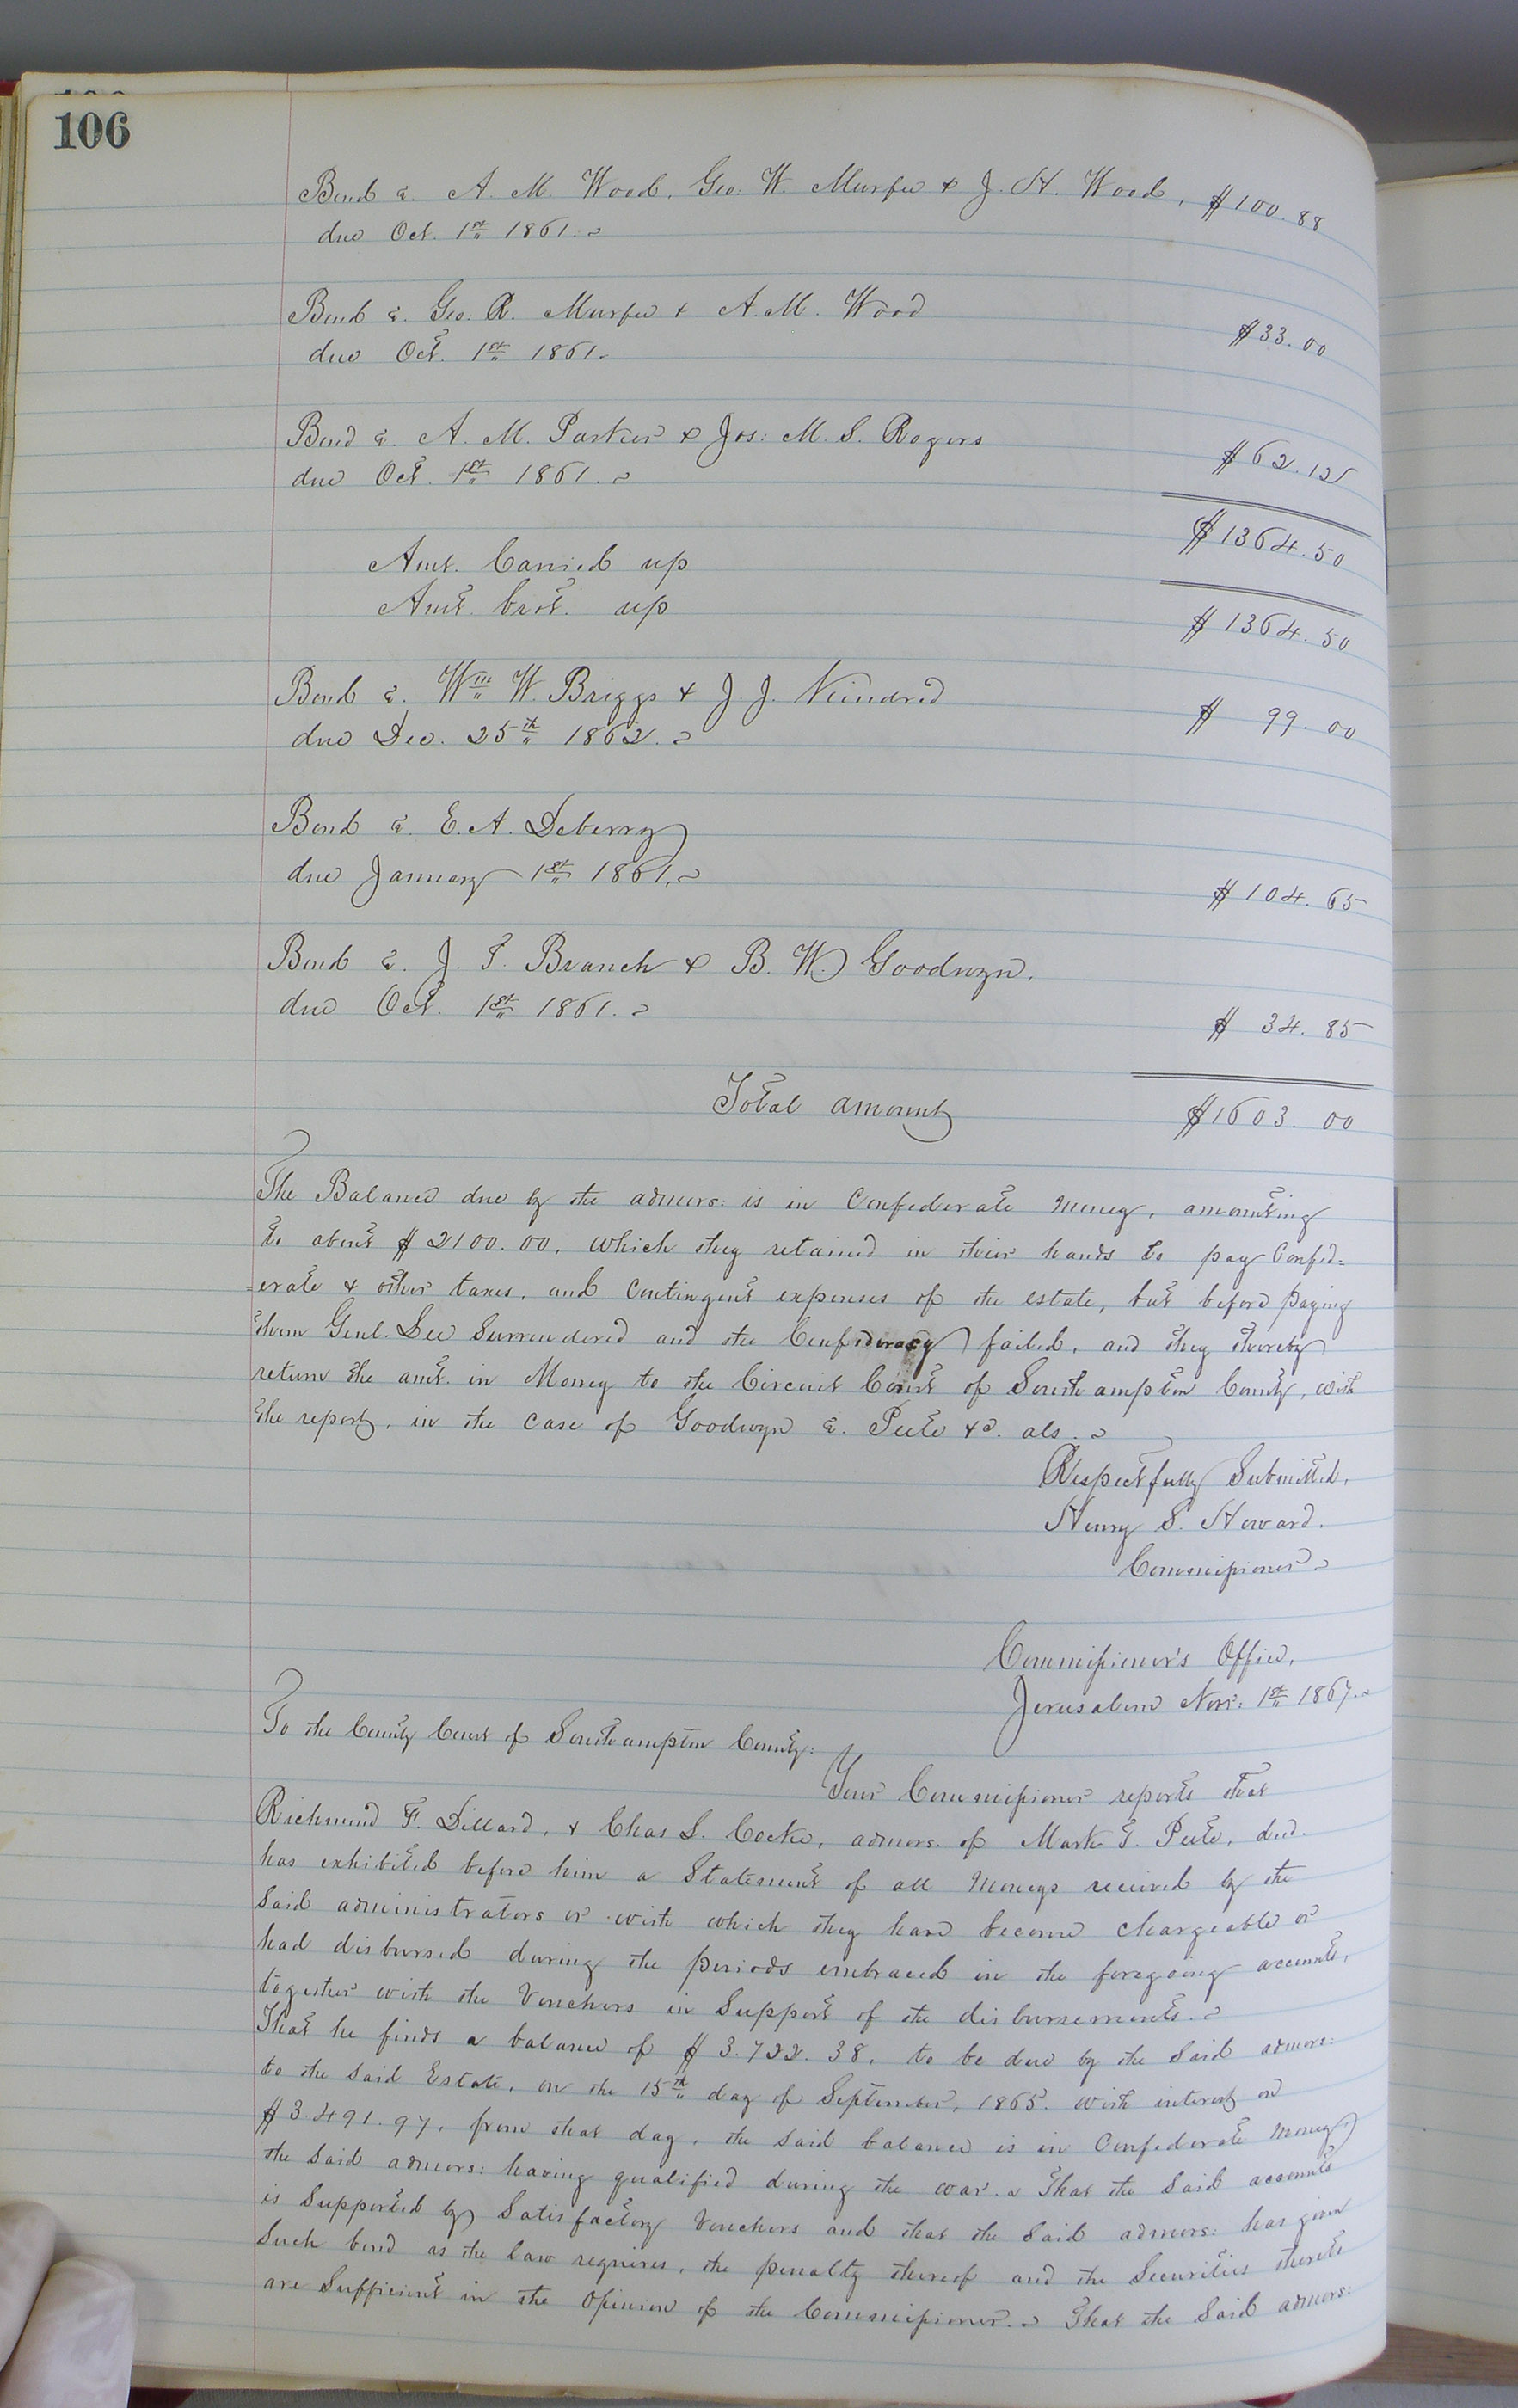 106
Bond a. A. M. Wood, Geo. W. Murfee & J. H. Wood, $100.88
due Oct. 1st 1861.
Bond a. Geo. R. Murfee & A. M. Wood
$33.00
due Oct. 1st 1861.
Bond a. A. M. Parker & Jos: M. S. Rogers
$62.12
due Oct. 1st 1861.
$1364.50
Amt. Carried up
Amt. brot. up
$1364.50
Bond a. Wm W. Briggs & J. J. Kindred
$ 99.00
due Dec. 25th 1862.
Bond a. E. A. Deberry
due January 1st 1861.
$104.65
Bond a. J. T. Branch & B. W. Goodwyn.
due Oct. 1st 1861.
$ 34.85
Total amount $1603.00
The Balance due by the admors: is in Confederate money, amounting
to about $2100.00, which they retained in their hands to pay Confed=
=erate & other taxes, and Contingent expenses of the estate, but before paying
them Genl. Lee Surrendered and the Confederacy failed, and they thereby
return the amt. in Money to the Circuit Court of Southampton County, with
the report, in the case of Goodwyn a. Peete &c. als.
Respectfully Submitted,
Henry S. Howard.
Commissioner
Commissioner's Office,
Jerusalem Nov: 1st 1867.
To the County Court of Southampton County:
Your Commissioner reports that
Richmond F. Dillard, & Chas S. Cocke, admors. of Mark T. Peete, decd.
has exhibited before him a Statement of all Moneys received by the
Said administrators or with which they have become chargeable or
had disbursed during the periods embraced in the foregoing accounts,
together with the Vouchers in Support of the disbursements.
That he finds a balance of $3.722.38, to be due by the Said admors:
to the Said Estate, on the 15th day of September, 1865. with interest on
$3.491.97, from that day, the said balance is in Confederate Money
the Said admors: having qualified during the war. That the Said accounts
is Supported by Satisfactory Vouchers and that the Said admors: has given
Such bond as the law requires, the penalty thereof and the Securities thereto
are Sufficient in the Opinion of the Commissioner. That the Said admors: